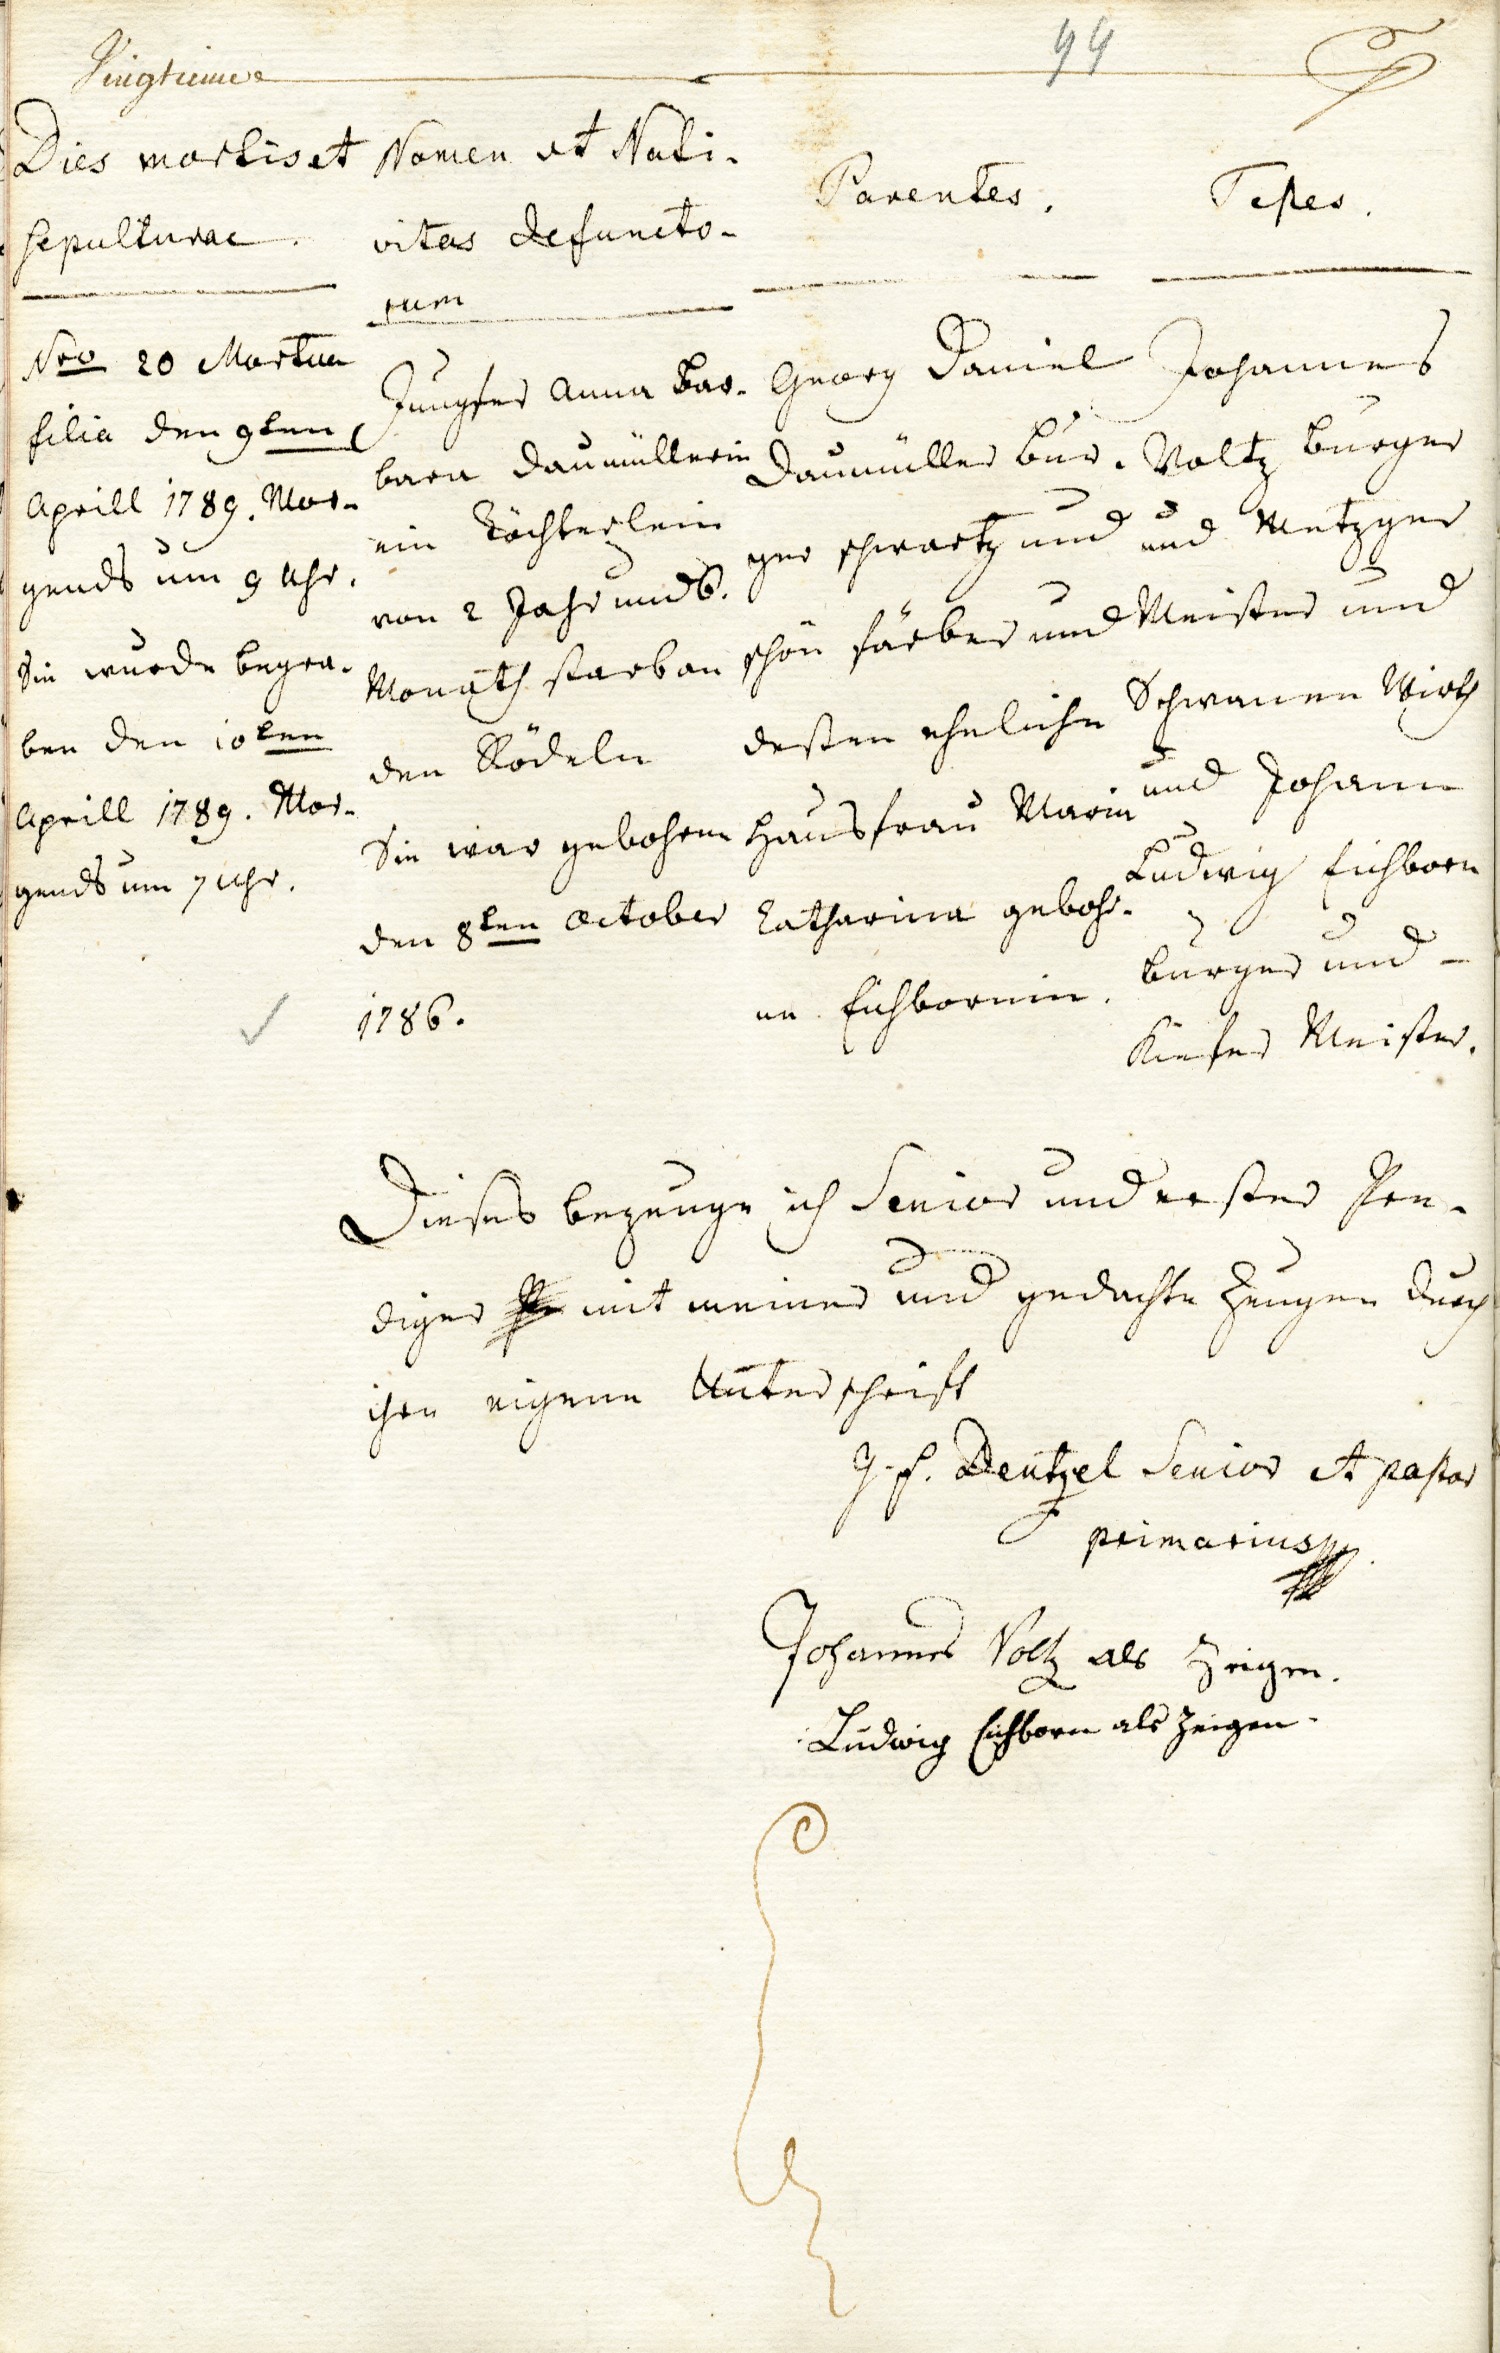 Vingtieme
99
Dies mortis et
sepulturae.
Nomen et Nati-
vitas defuncto-
rum
Parentes.
Testes.
Nro 20 Mortua
filia den 9ten
Aprill 1789. Mor-
gends um 9 Uhr.
Sie wurde begra-
ben den 10ten
Aprill 1789. Mor-
gends um 7 Uhr.
Jungfer Anna Bar-
bara Daumüllerin
ein Töchterlein
von 2 Jahr und 6.
Monath starb an
den Rödeln
Sie war gebohren
den 8ten October
1786.
Georg Daniel
Daumüller Bur-
ger schwartz und
schön färber und
dessen eheliche
Hausfrau Maria
Catharina gebohr-
ne Eichbornin.
Johannes
Voltz Burger
und Metzger
Meister und
Schwanen Wirth
und Johann
Ludwig Eichborn
Burger und -
Kiefer Meister.
Dieses bezeuge ich Senior und erster Pre-
diger mit meiner und gedachte Zeugen durch
ihre eigene Unterschrift
J. f. Dentzel Senior et pastor
primarius
Johannes Voltz als Zeigen.
Ludwig Eichborn als Zeigen.